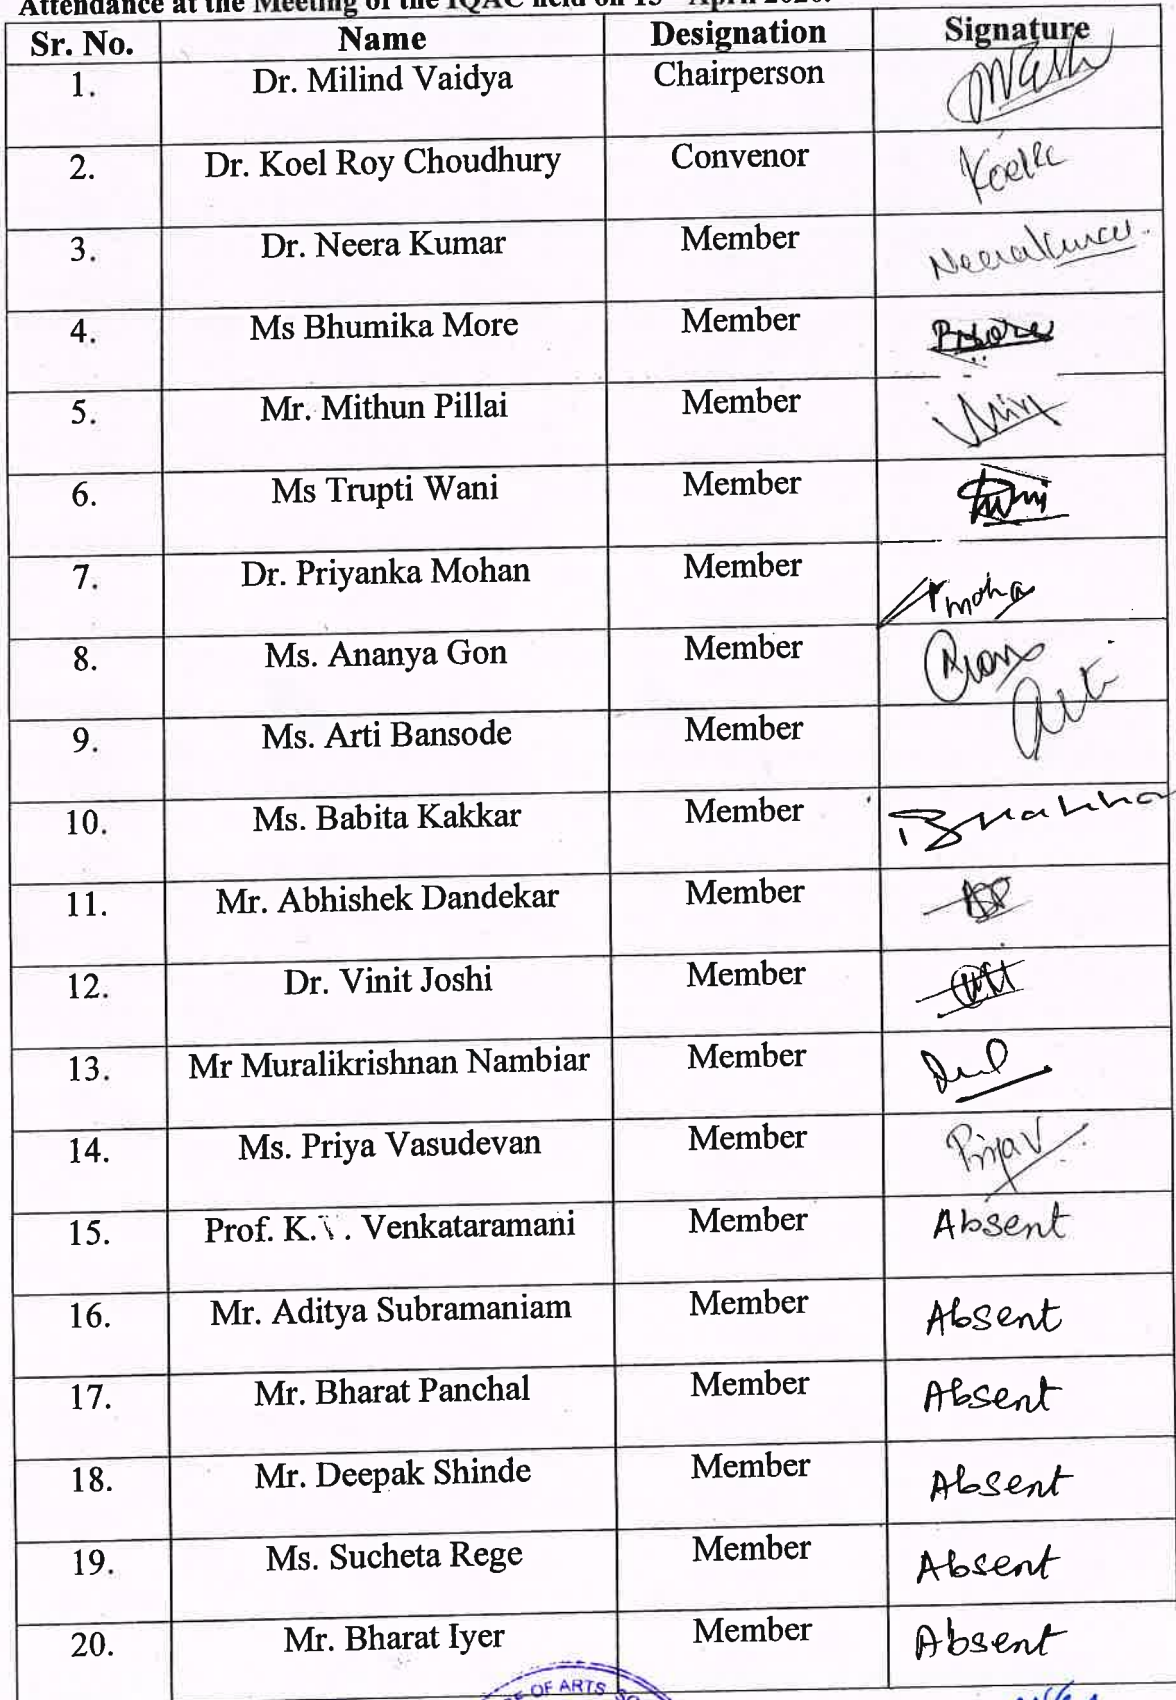 Attendance at the Meeting of the IQAC held on 15 April 2026.
Sr. No. Name Designation Signature
1. Dr. Milind Vaidya Chairperson
2. Dr. Koel Roy Choudhury Convenor
3. Dr. Neera Kumar Member Neerakumar
4. Ms Bhumika More Member
5. Mr. Mithun Pillai Member
6. Ms Trupti Wani Member
7. Dr. Priyanka Mohan Member
8. Ms. Ananya Gon Member
9. Ms. Arti Bansode Member Arti
10. Ms. Babita Kakkar Member
11. Mr. Abhishek Dandekar Member
12. Dr. Vinit Joshi Member
13. Mr Muralikrishnan Nambiar Member
14. Ms. Priya Vasudevan Member Priya V
15. Prof. K.V. Venkataramani Member Absent
16. Mr. Aditya Subramaniam Member Absent
17. Mr. Bharat Panchal Member Absent
18. Mr. Deepak Shinde Member Absent
19. Ms. Sucheta Rege Member Absent
20. Mr. Bharat Iyer Member Absent
OF ARTS